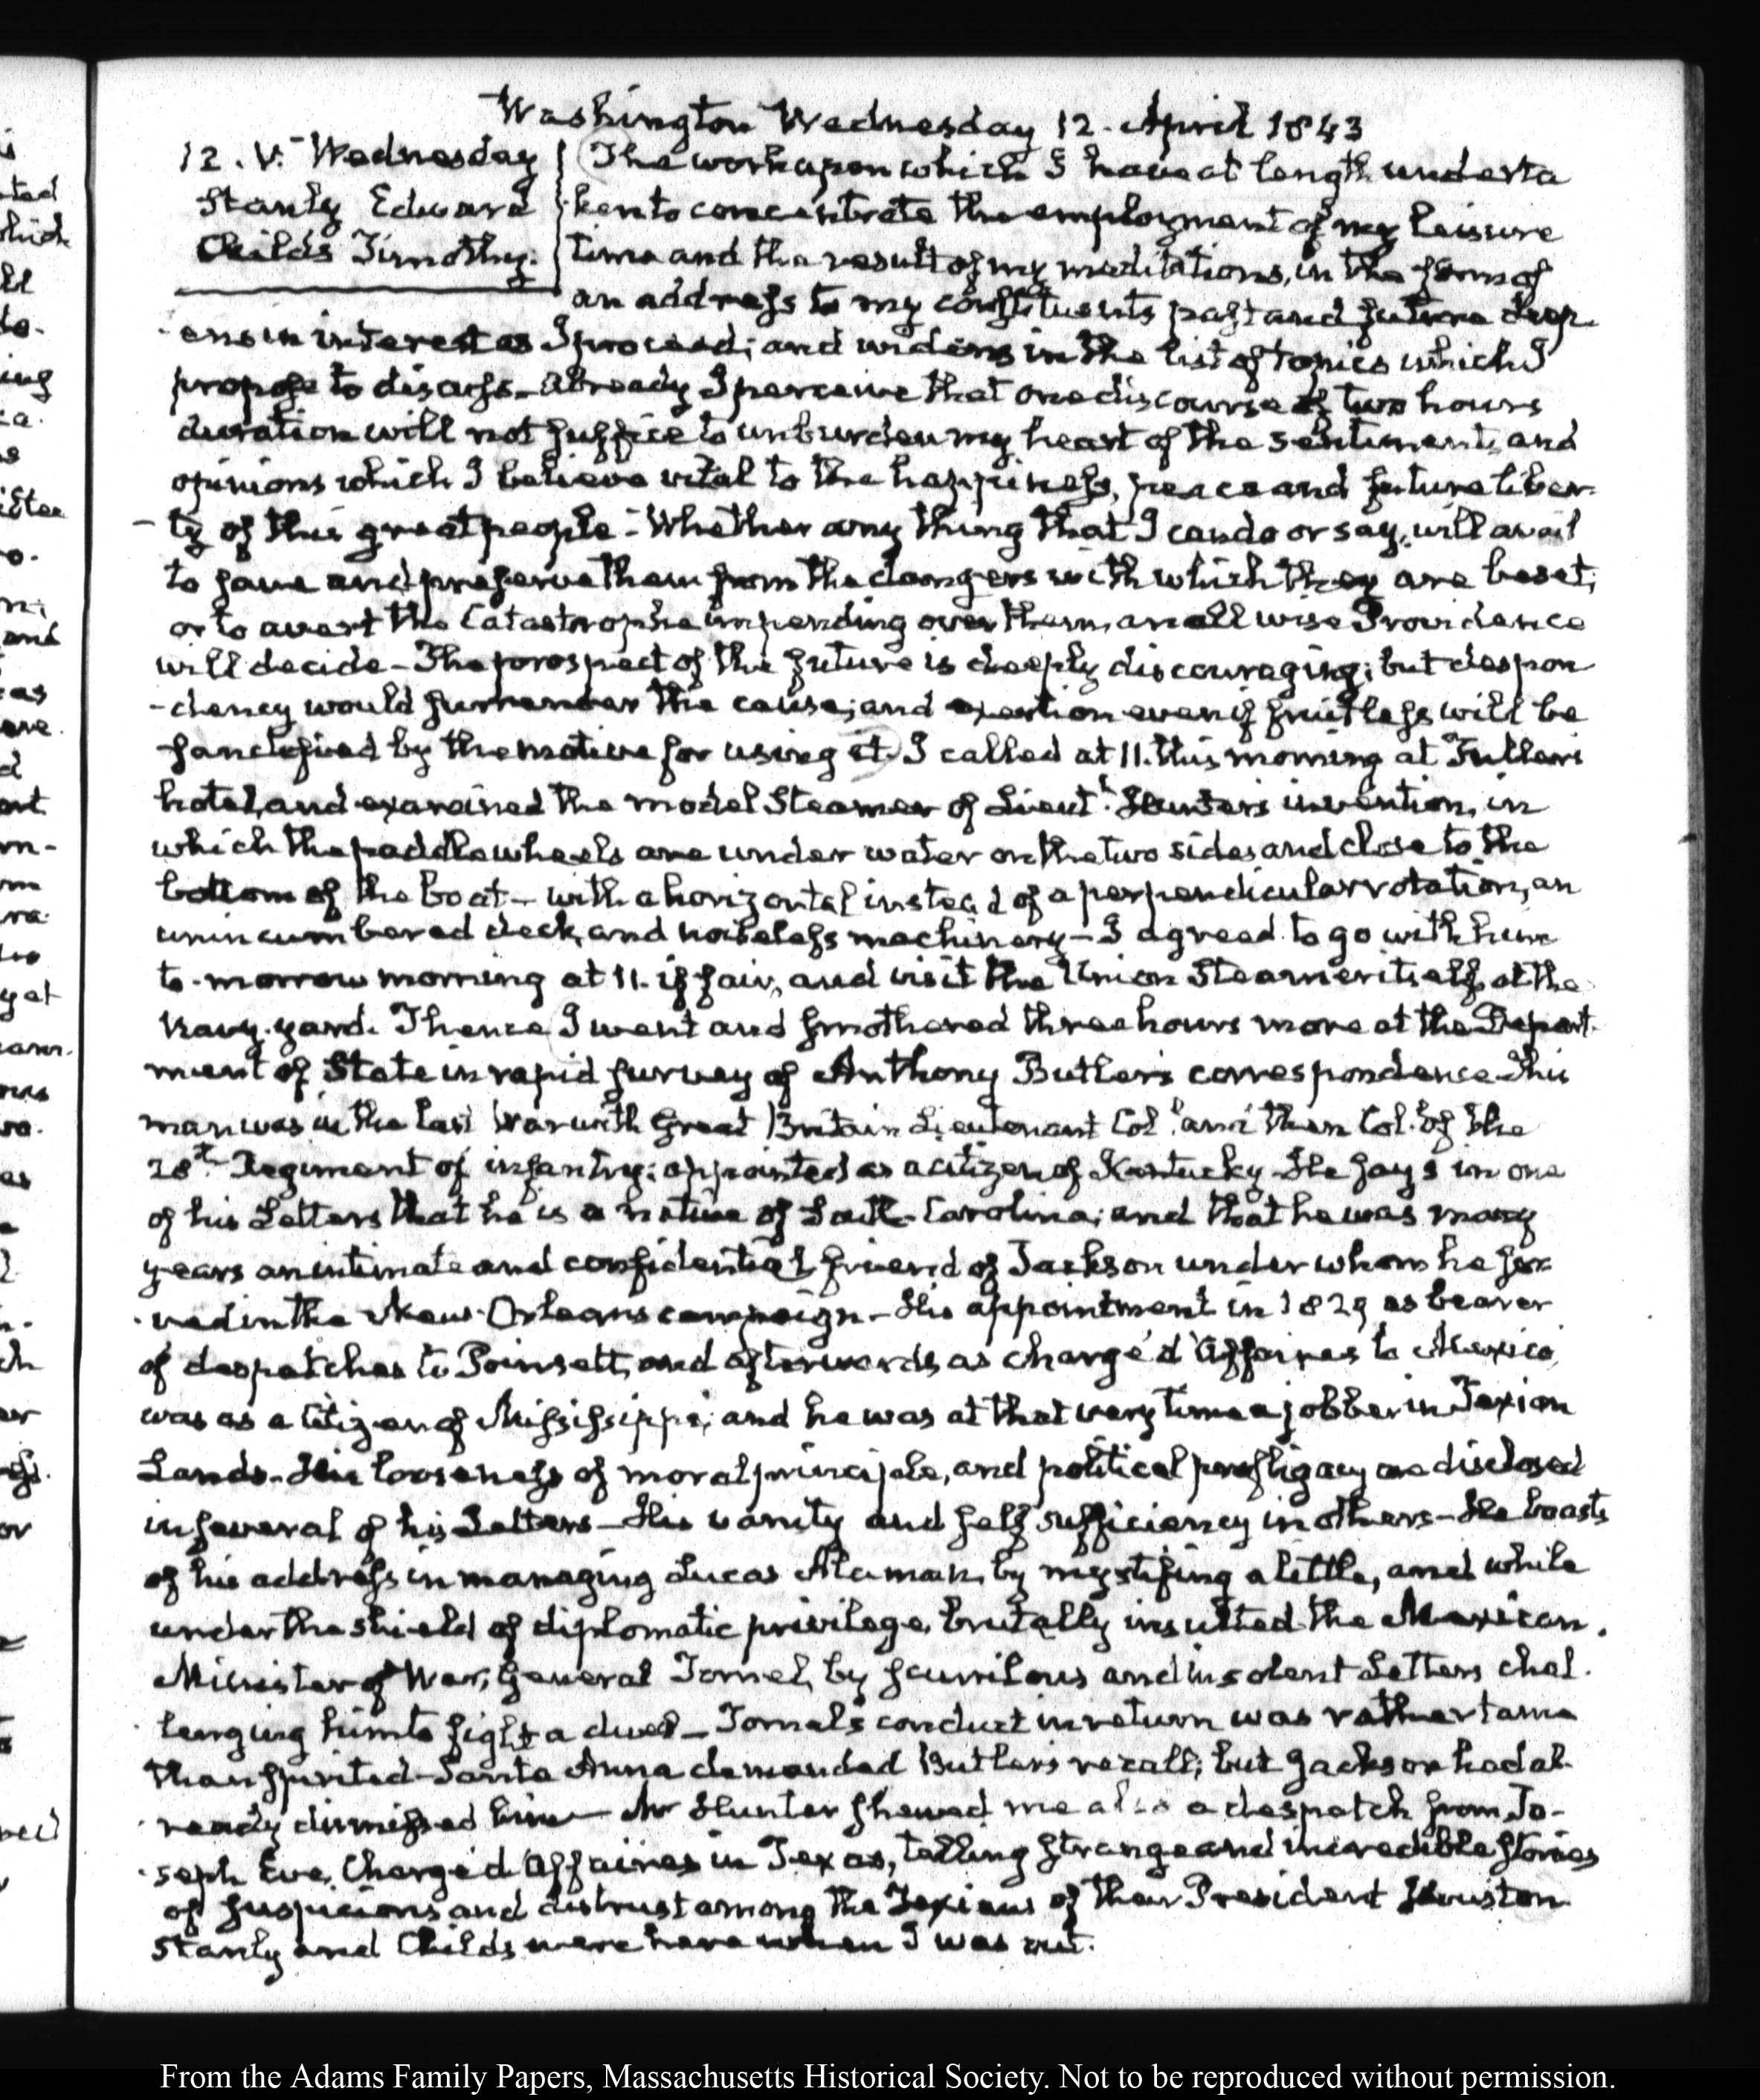 Washington Wednesday 12. April 1843
12. V. Wednesday
Stanly Edward
Childs Timothy.
The work upon which I have at length underta
ken to concentrate the employment of my leisure
time and the result of my meditations, in the form of
an address to my constituents past and future deep-
ens in interest as I proceed; and widens in the list of topics which I
propose to discuss. Already I perceive that one discourse of two hours
duration will not suffice to unburden my heart of the sentiments and
opinions which I believe vital to the happiness, peace and future liber-
ty of this great people. Whether any thing that I can do or say, will avail
to save and preserve them from the dangers with which they are beset;
or to avert the Catastrophe impending over them, an all wise Providence
will decide – The prospect of the future is deeply discouraging; but despon
-dency would surrender the cause; and exertion even if fruitless will be
sanctified by the motive for using it. I called at 11. this morning at Fuller's
hotel, and examined the model Steamer of Lieutt. Hunter's invention, in
which the paddle wheels are under water on the two sides and close to the
bottom of the boat – with a horizontal instead of a perpendicular rotation, an
unincumbered deck, and noiseless machinery – I agreed to go with him
to-morrow morning at 11. if fair, and visit the Union Steamer itself at the
Navy-yard. Thence I went and smothered three hours more at the Depart-
ment of State in rapid survey of Anthony Butler's correspondence. This
man was in the last War with Great Britain Lieutenant Coll. and then Coll. of the
28th. Regiment of infantry: appointed as a citizen of Kentucky. He says in one
of his Letters that he is a native of South-Carolina; and that he was many
years an intimate and confidential friend of Jackson under whom he ser
-ved in the New-Orleans campaign – His appointment in 1829 as bearer
of despatches to Poinsett, and afterwards as chargé d'Affaires to Mexico,
was as a Citizen of Mississippi; and he was at that very time a jobber in Texian
Lands. His looseness of moral principle, and political profligacy are disclosed
in several of his Letters – His vanity and self sufficiency in others – He boasts
of his address in managing Lucas Alaman, by mystifing a little, and while
under the shield of diplomatic privilege, brutally insulted the Mexican
Minister of War, General Tornel, by scurrilous and insolent Letters chal-
lenging him to fight a duel – Tornel's conduct in return was rather tame
than spirited. Santa Anna demanded Butler's recall; but Jackson had al-
ready dismissed him – Mr Hunter shewed me also a despatch from Jo-
seph Eve, Chargé d'Affaires in Texas, telling strange and incredible stories
of suspicions and distrust among the Texians of their President Houston
Stanly and Childs were here when I was out.
From the Adams Family Papers, Massachusetts Historical Society. Not to be reproduced without permission.